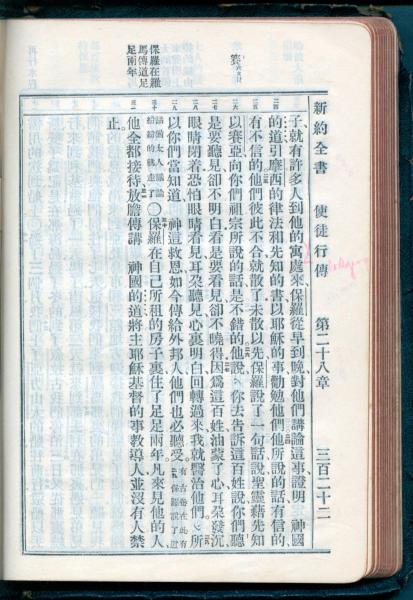 新約全書 使徒行傳 第二十八章 三百二十二
保羅在羅
馬傳道足
足兩年
子就有許多人到他的寓處來保羅從早到晚對他們講論這事證明 神國
的道引摩西的律法和先知的書以耶穌的事勸勉他們他所說的話有信的
有不信的他們彼此不合就散了未散以先保羅說了一句話說聖靈藉先知
以賽亞向你們祖宗所說的話是不錯的他說你去告訴這百姓說你們聽
是要聽見卻不明白看是要看見卻不曉得因爲這百姓油蒙了心耳朶發沉
眼睛閉着恐怕眼睛看見耳朶聽見心裏明白回轉過來我就醫治他們所
以你們當知道 神這救恩如今傳給外邦人他們也必聽受。有古卷在此有
二九保羅說了這
話猶太人議論
紛紛的就走了
〇保羅在自己所租的房子裏住了足足兩年凡來見他的人
他全都接待放膽傳講 神國的道將主耶穌基督的事教導人並沒有人禁
止。